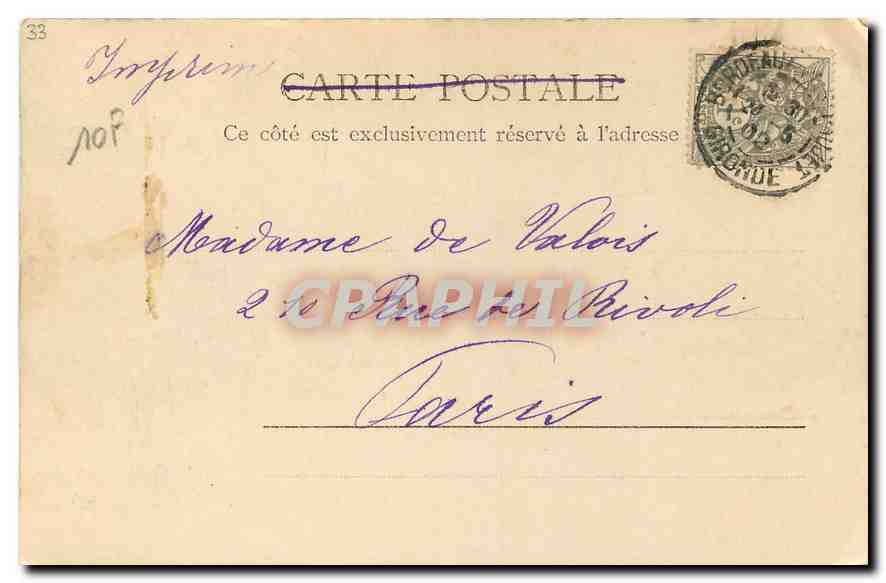 33
Imprimé
CARTE POSTALE
10F
Ce côté est exclusivement réservé à l'adresse
BORDEAUX
GIRONDE
Madame de Valois
Rue de Rivoli
Paris
CPAPHIL